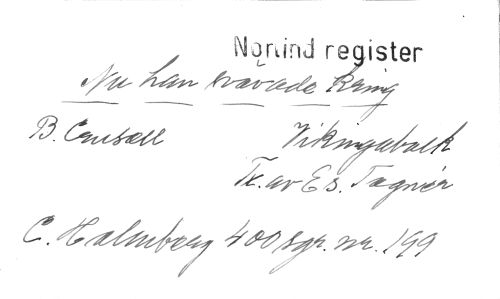 Notind register
Nu han svävade kring
B. Crusell Vikingabalk
Tx. av Es. Tegnér
C. Holmberg 400 sgr. nr. 199